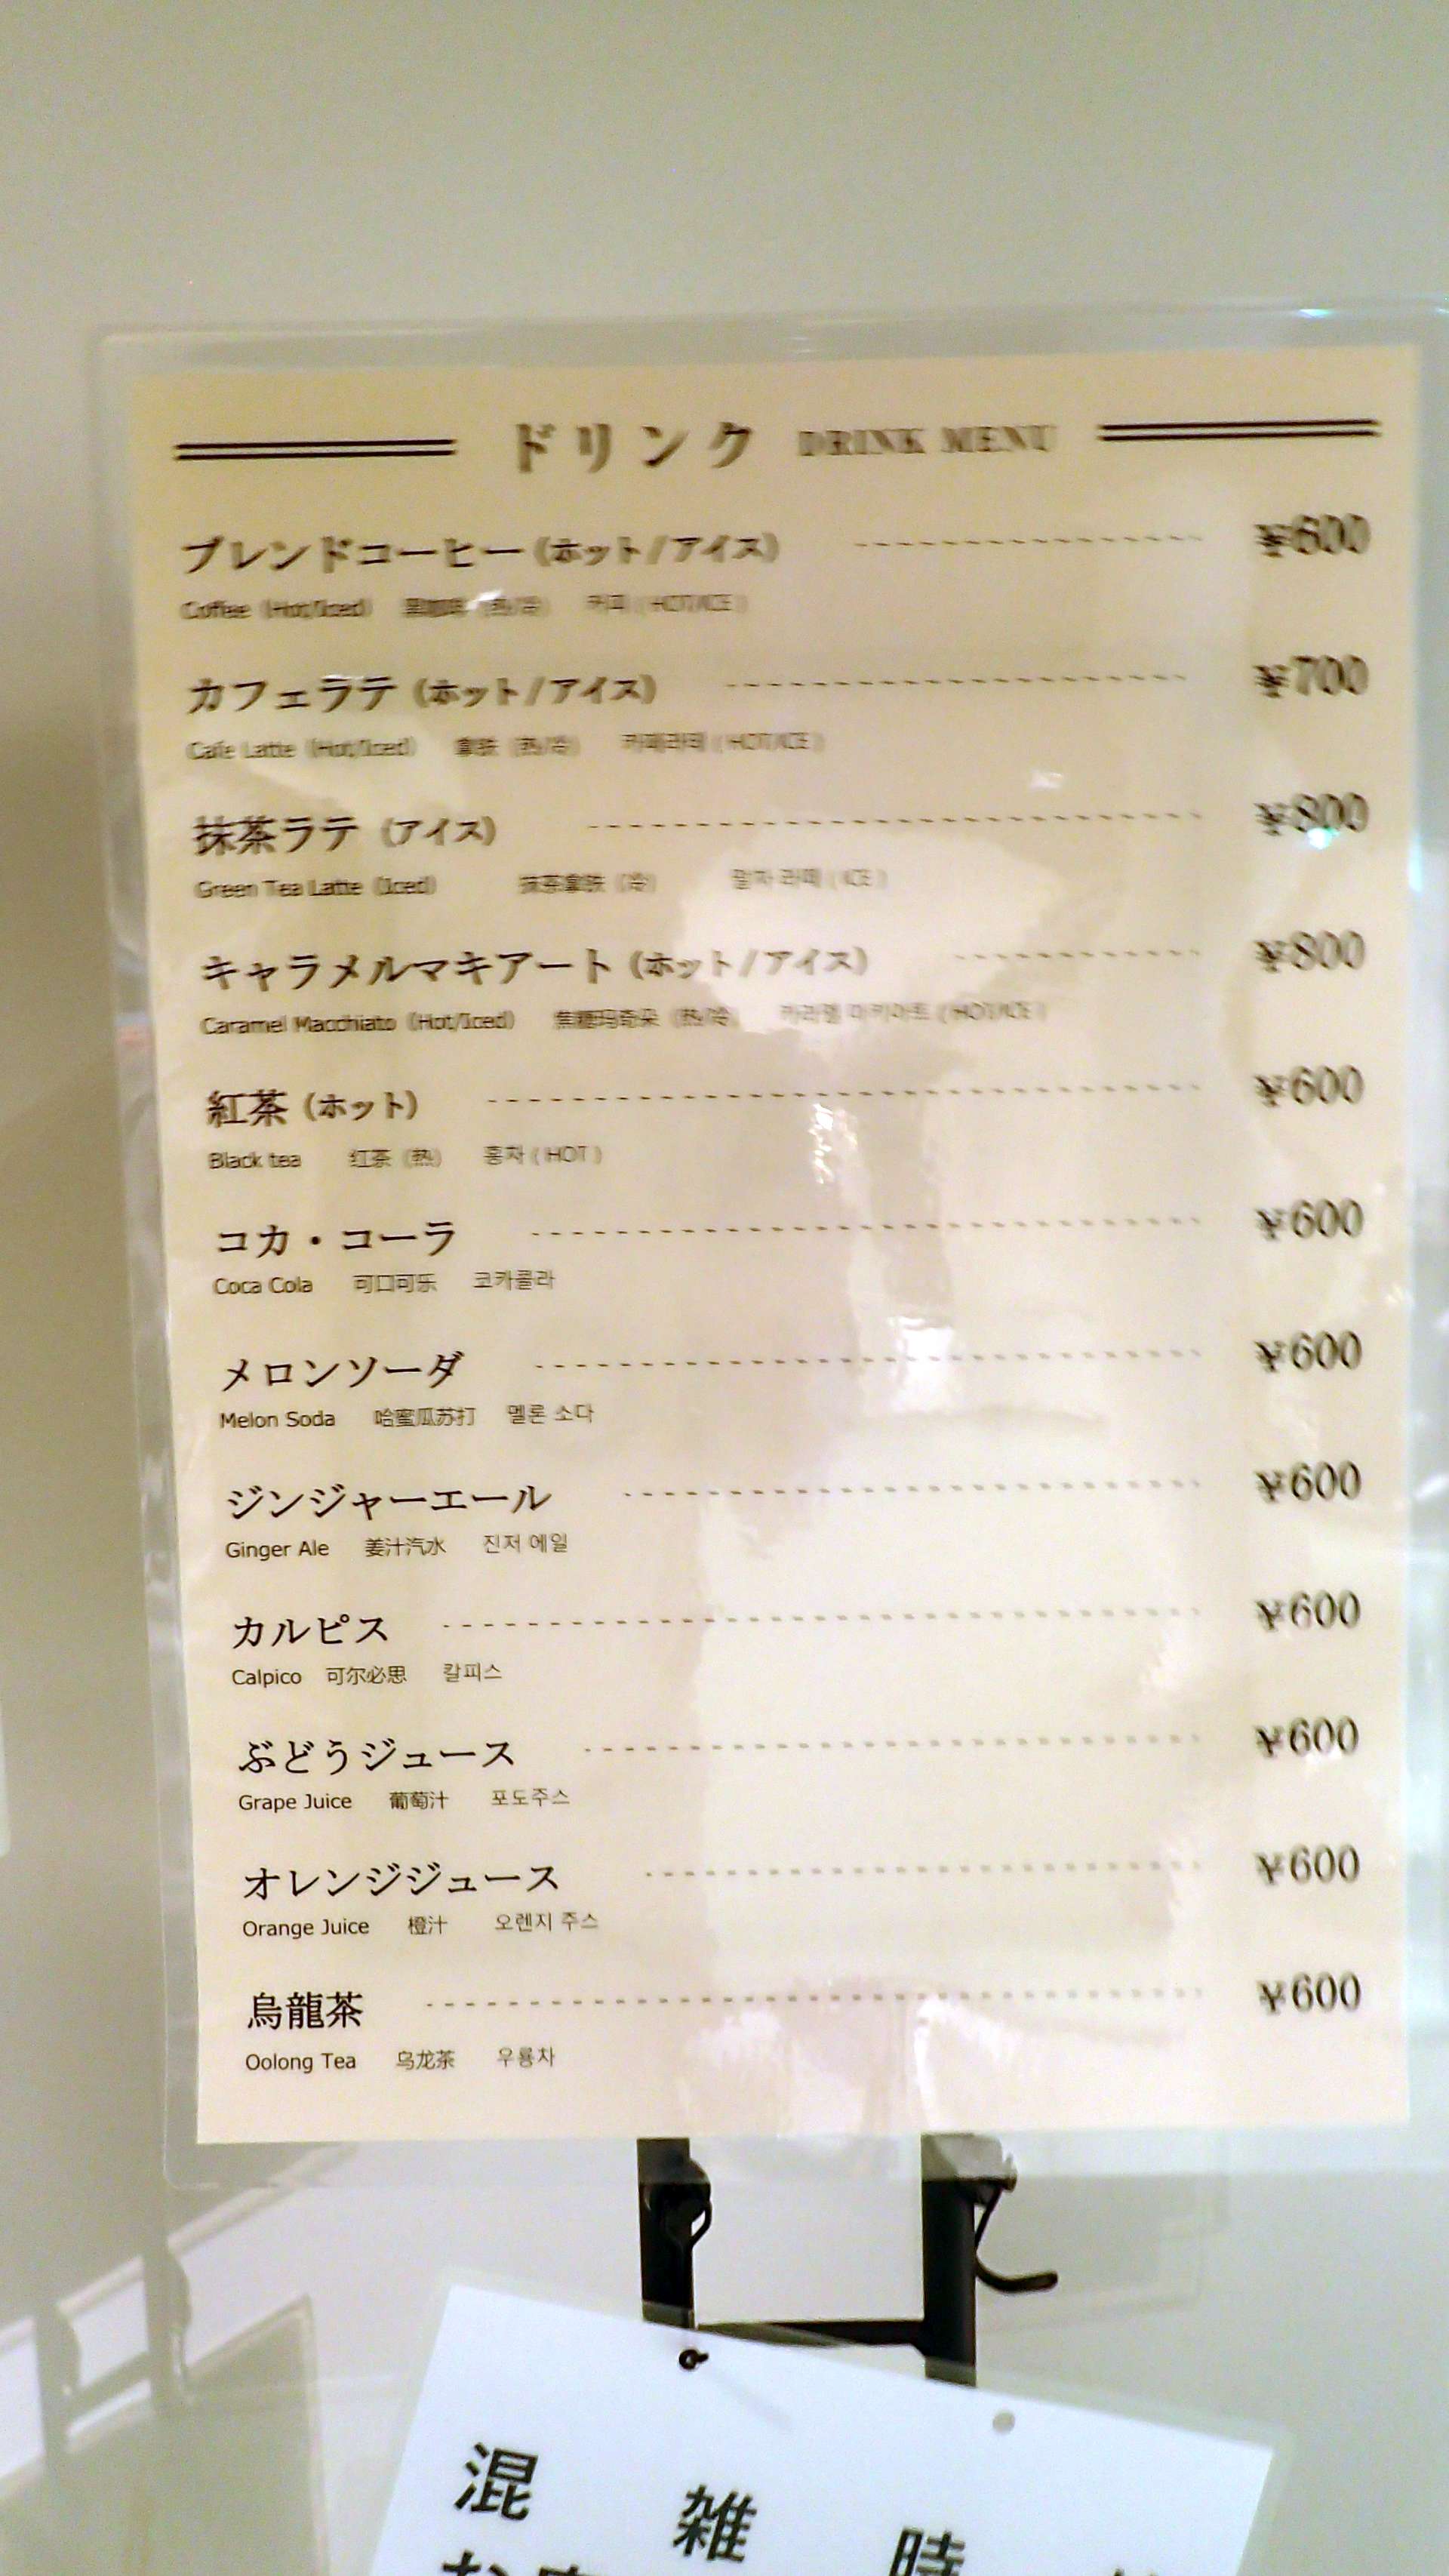 ドリンク DRINK MENU
ブレンドコーヒー(ホット/アイス) ¥600
Coffee (Hot/Iced) 黑咖啡 (热/冷) 커피 ( HOT/ICE )
カフェラテ (ホット/アイス) ¥700
Cafe Latte (Hot/Iced) 拿铁 (热/冷) 카페라테 ( HOT/ICE )
抹茶ラテ (アイス) ¥800
Green Tea Latte (Iced) 抹茶拿铁 (冷) 말차 라떼 ( ICE )
キャラメルマキアート (ホット/アイス) ¥800
Caramel Macchiato (Hot/Iced) 焦糖玛奇朵 (热/冷) 카라멜 마키아토 ( HOT/ICE )
紅茶 (ホット) ¥600
Black tea 红茶 (热) 홍차 ( HOT )
コカ・コーラ ¥600
Coca Cola 可口可乐 코카콜라
メロンソーダ ¥600
Melon Soda 哈蜜瓜苏打 멜론 소다
ジンジャーエール ¥600
Ginger Ale 姜汁汽水 진저 에일
カルピス ¥600
Calpico 可尔必思 칼피스
ぶどうジュース ¥600
Grape Juice 葡萄汁 포도주스
オレンジジュース ¥600
Orange Juice 橙汁 오렌지 주스
烏龍茶 ¥600
Oolong Tea 乌龙茶 우롱차
混雑時